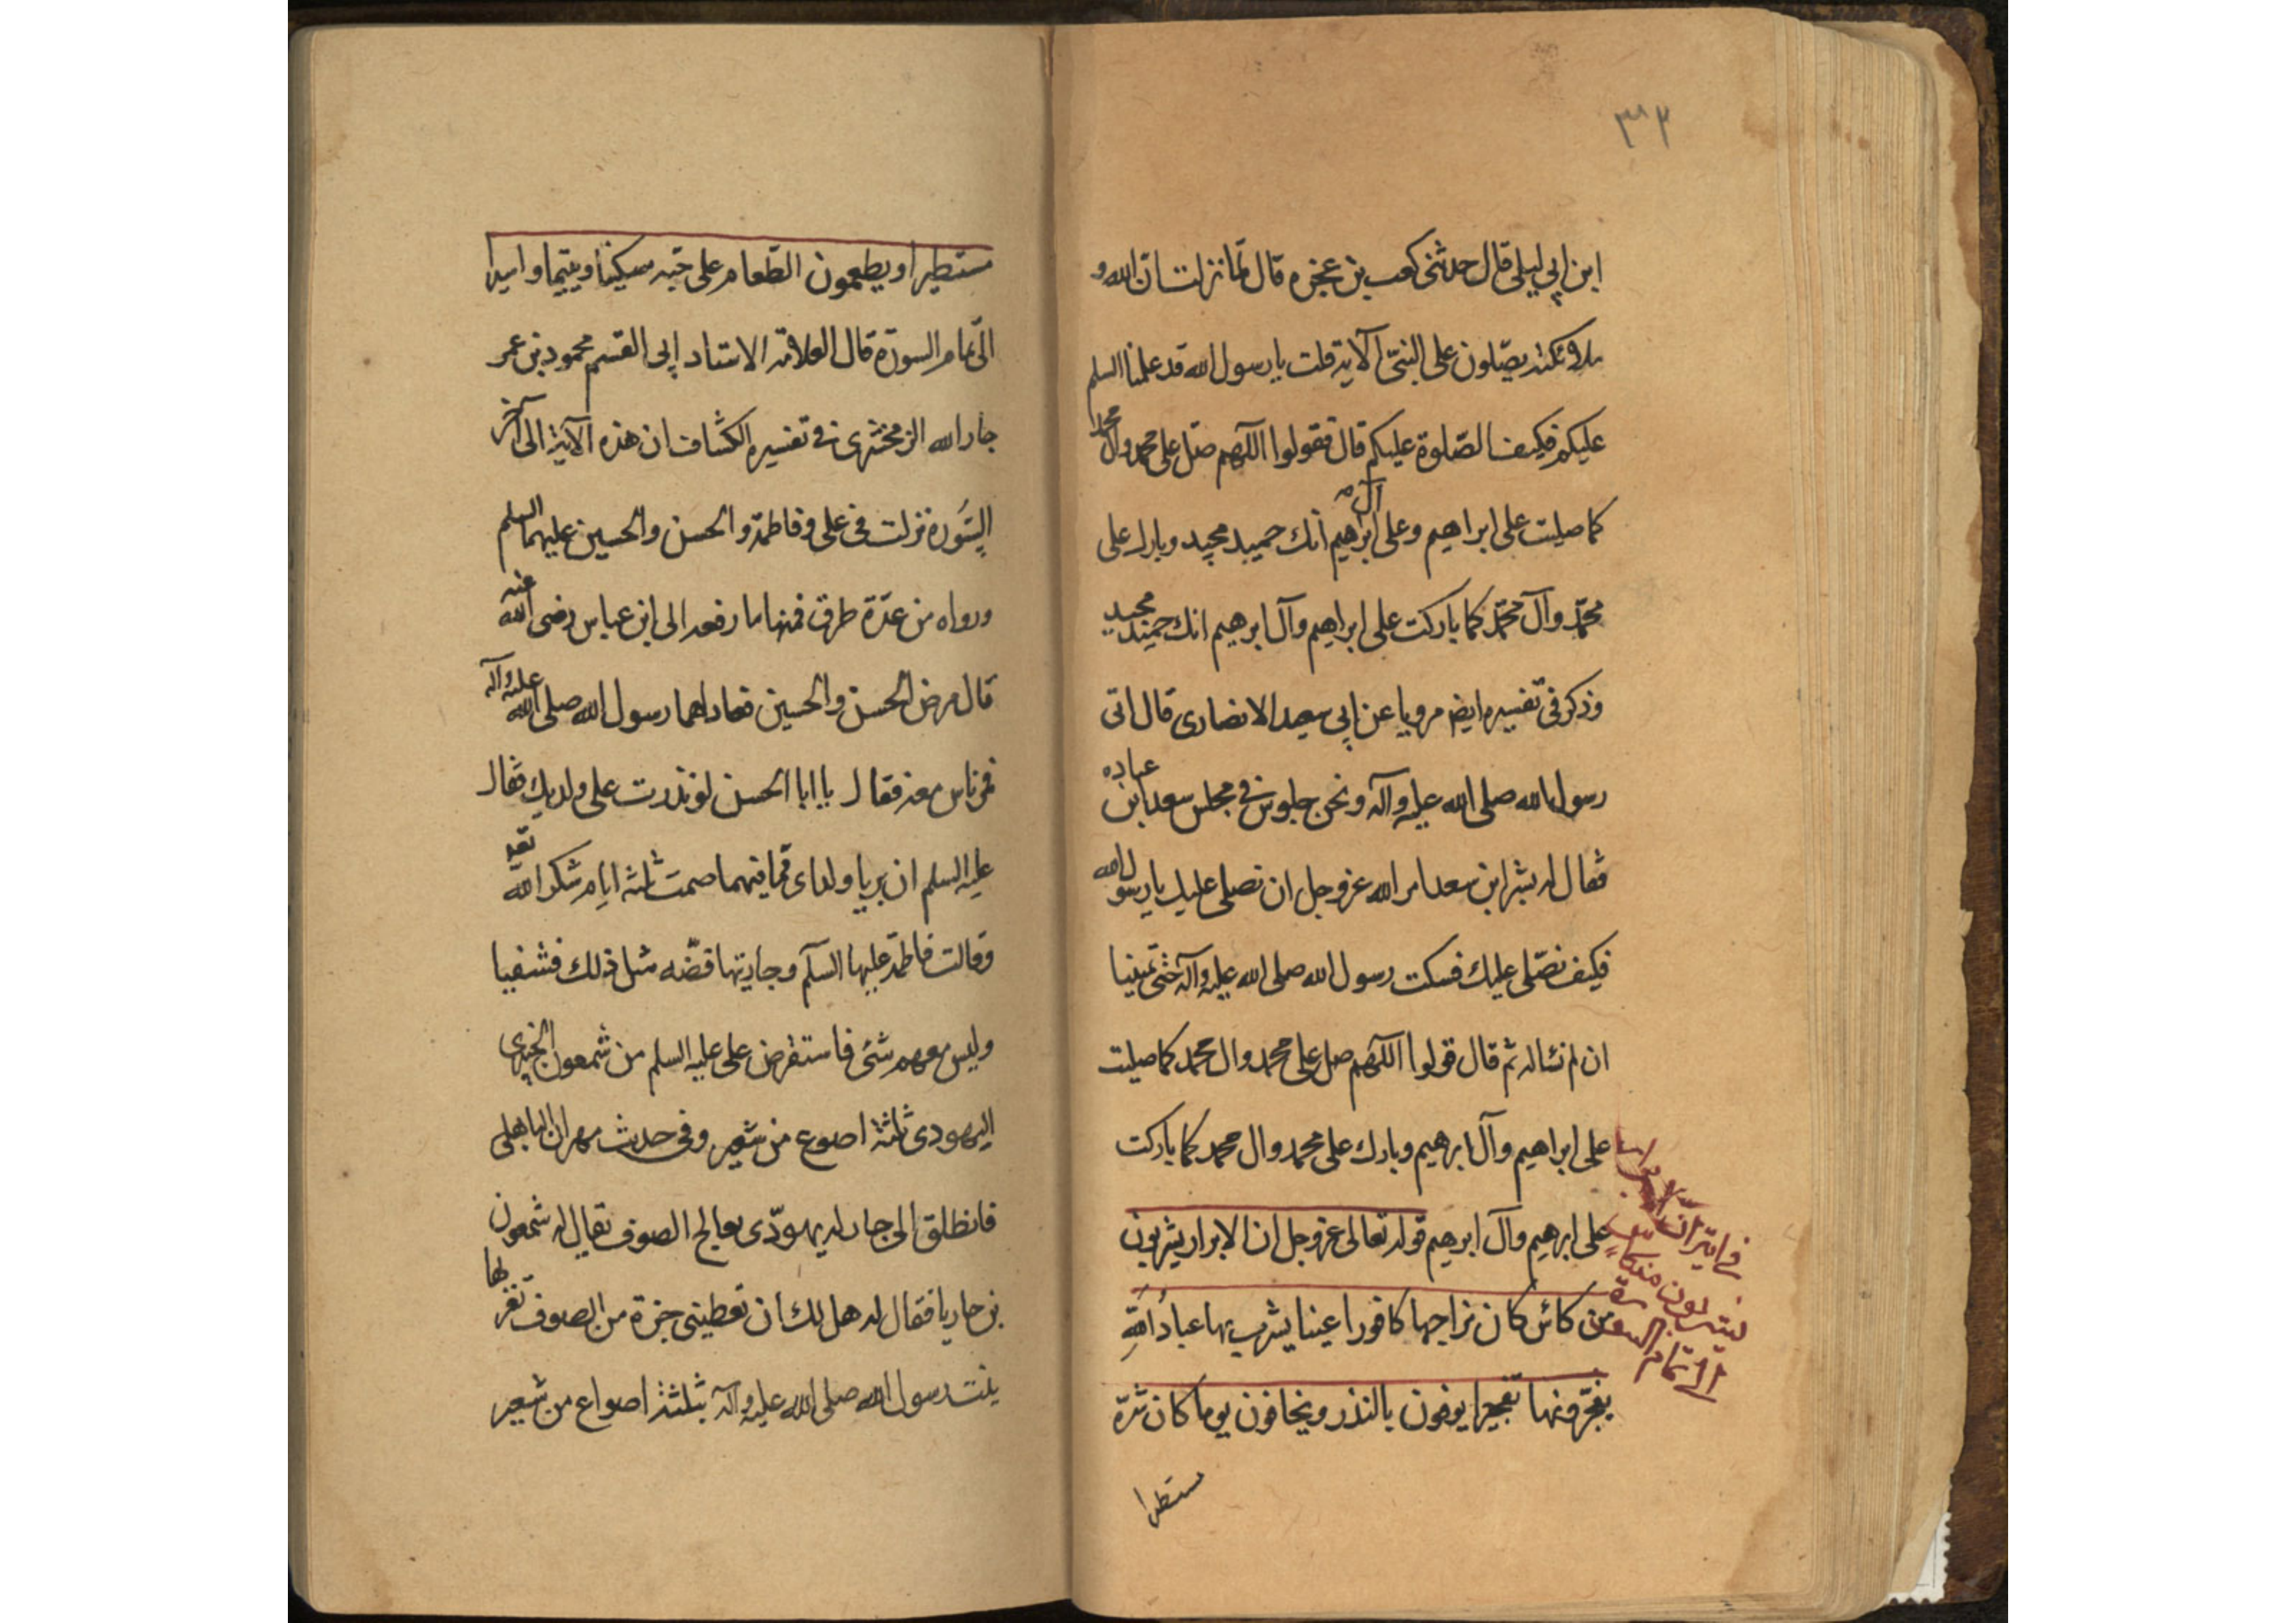 ٣٩٢
ابن ابي ليلى قال حدثنى كعب بن عجزه قال لما نزلت ان الله و
ملائكته يصّلون على النبىّ الآية قلت يا رسول الله قد علمنا السلم
عليكم فكيف الصّلوة عليكم قال فقولوا اللّهم صلّ على محمد وال محمد
كما صليت على ابراهيم وعلى آل ابرهيم انك حميد مجيد وبارك على
محمّد وآل محمّد كما باركت على ابراهيم وآل ابرهيم انك حميد مجيد
وذكر فى تفسيره ايضا مرويا عن ابى سعيد الانصارى قال اتى
رسول الله صلى الله عليه وآله ونحن جلوس فى مجلس سعد ابن عباده
فقال له بشر ابن سعد امر الله عز وجل ان نصلى عليك يا رسول الله
فكيف نصّلى عليك فسكت رسول الله صلى الله عليه وآله حتى تمنينا
ان لم نساله ثم قال قولوا اللّهم صل على محمد وال محمد كما صليت
على ابراهيم وآل ابرهيم وبارك على محمد وال محمد كما باركت
على ابرهيم وآل ابرهيم قوله تعالى عز وجل ان الابرار يشربون
من كائس كان مزاجها كافورا عينا يشرب بها عبادُ اللهِ
يفجّرونها تفجيرا يوفون بالنذر ويخافون يوما كان شرّه
فى ان الابرار
يشربون من كاس
الى تمام السورة
مستطيرا
مستطيرا ويطعمون الطّعام على حبّه مسكينا ويتيما واسيرا
الى تمام السورة قال العلامة الاستاد ابى القسم محمود بن عمر
جار الله الزمخشرى فى تفسيره الكشاف ان هذه الآية الى آخر
السّورة نزلت فى على وفاطمة والحسن والحسين عليهما السلم
ورواه من عدّة طرق فمنها ما رفعه الى ابن عباس رضى الله عنه
قال مرض الحسن والحسين فعادهما رسول الله صلى الله عليه وآله
فى ناس معه فقال يا ابا الحسن لو نذرت على ولديك فقال
عليه السلم ان بريا ولداى مما بهما صمت ثلثه ايام شكرا لله تعه
وقالت فاطمة عليها السلم وجاريتها فضّه مثل ذلك فشفيا
وليس معهم شئ فاستقرض على عليه السلم من شمعون الخيبرى
اليهودى ثلثة اصوع من شعير وفى حديث مهران الباهلى
فانطلق الى جار له يهودّى يعالج الصوف يقال له شمعون
بن حاريا فقال له هل لك ان تعطينى جزة من الصوف تغزلها
بنت رسول الله صلى الله عليه وآله بثلثة اصواع من شعير